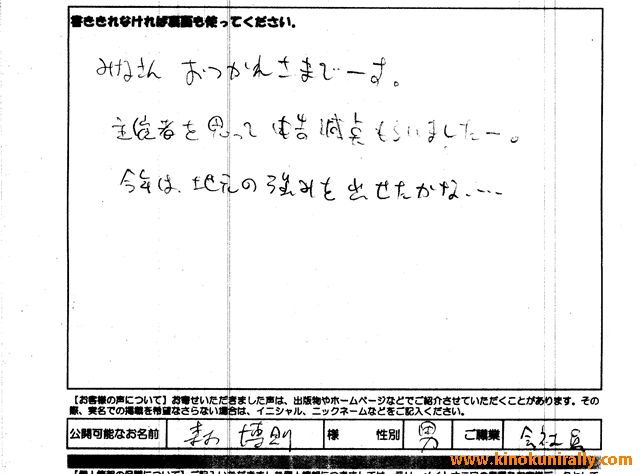 書ききれなければ裏面も使ってください。
みなさん おつかれさまでーす。
主催者を思って申告減点もらいましたー。
今年は、地元の強みを出せたかな、…
【お客様の声について】お寄せいただきました声は、出版物やホームページなどでご紹介させていただくことがあります。その
際、実名での掲載を希望なさらない場合は、イニシャル、ニックネームなどをご記入ください。
公開可能なお名前 博則 様 性別 男 ご職業 会社員
www.kinokunirally.com